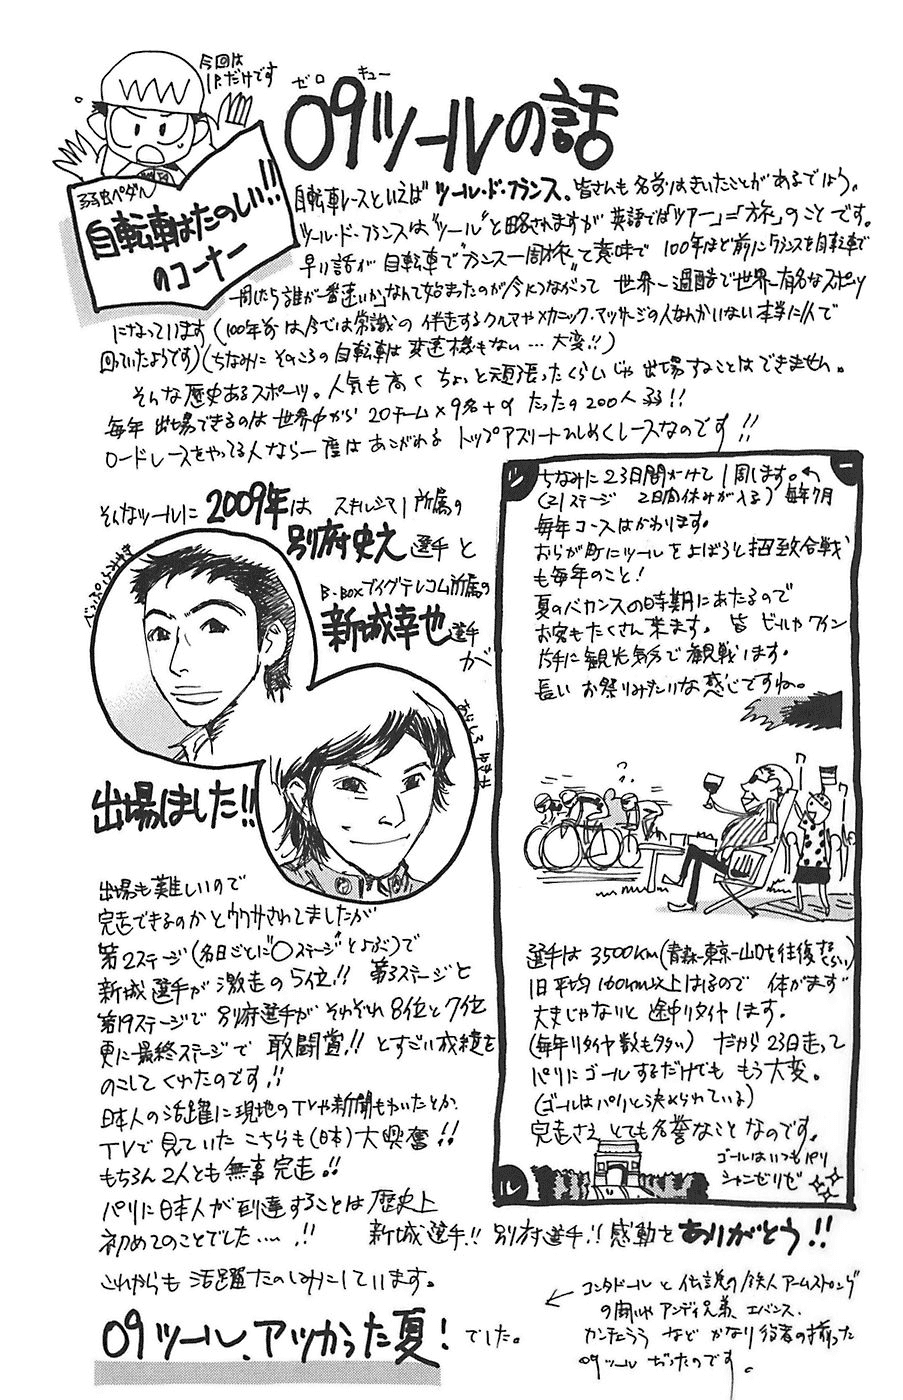 今回は
1P.だけです
弱虫ペダル
自転車はたのしい!!
のコーナー
ゼロ キュー
09ツールの話
自転車レースといえば ツール・ド・フランス、皆さんも名前はきいたことがあるでしょう。
ツール・ド・フランスは"ツール"と略されますが 英語では「ツアー」=「旅」のことです。
早い話が 自転車で"フランス一周旅"て意味で 100年ほど前に「フランスを自転車で
一周したら誰が一番速いか」なんて始まったのが今につながって 世界一過酷で世界一有名なスポーツ
になっています(100年前は今では常識の 伴走するクルマやメカニック、マッサージの人なんかいない 本当に1人で
回っていたようです)(ちなみに そのころの自転車は 変速機もない…大変!!)
そんな歴史あるスポーツ。人気も高く ちょっと頑張ったくらいじゃ出場することはできません。
毎年 出場できるのは 世界中から 20チーム×9名+α たったの200人弱!!
ロードレースをやってる人なら一度は あこがれる トップアスリートひしめくレースなのです!!
そんなツールに 2009年は スキル・シマノ所属の
別府史之選手と
べっぷ ふみゆき
B・BOXブイグテレコム所属の
新城幸也選手
が
あらしろ ゆきや
出場しました!!
出場も難しいので
完走できるのかとウワサされてましたが
第2ステージ(各日ごとに"○ステージ"とよぶ)で
新城選手が 激走の5位!! 第3ステージと
第19ステージで 別府選手が それぞれ8位と7位
更に最終ステージで 敢闘賞!! とすごい成績を
のこしてくれたのです!!
日本人の活躍に現地のTVや新聞もわいたとか、
TVで見ていた こちらも(日本)大興奮!!
もちろん2人とも無事完走!!
パリに日本人が到達することは歴史上
初めてのことでした…!!
新城選手!! 別府選手!! 感動をありがとう!!
これからも 活躍たのしみにしています。
09ツール、アツかった夏! でした。
ツ
ー
ル
ちなみに23日間かけて1周します。
(21ステージ 2日間休みが入る) 毎年7月
毎年コースはかわります。
おらが町にツールをよぼうと招致合戦
も毎年のこと!
夏のバカンスの時期にあたるので
お客もたくさん来ます。皆 ビールやワイン
片手に観光気分で観戦します。
長いお祭りみたいな感じですね。
選手は3500km(青森-東京-山口を往復するぐらい)
1日平均160km以上はしるので 体がまず
丈夫じゃないと 途中リタイヤします。
(毎年リタイヤ数も多い) だから23日走って
パリにゴールするだけでも もう大変。
(ゴールはパリと決められている)
完走さえ とても名誉なことなのです。
ゴールはいつもパリ
シャンゼリゼ
コンタドールと伝説の鉄人アームストロング
の闘いや アンディ兄弟、エバンス、
カンチェラーラ など かなり役者の揃った
09ツール だったのです。